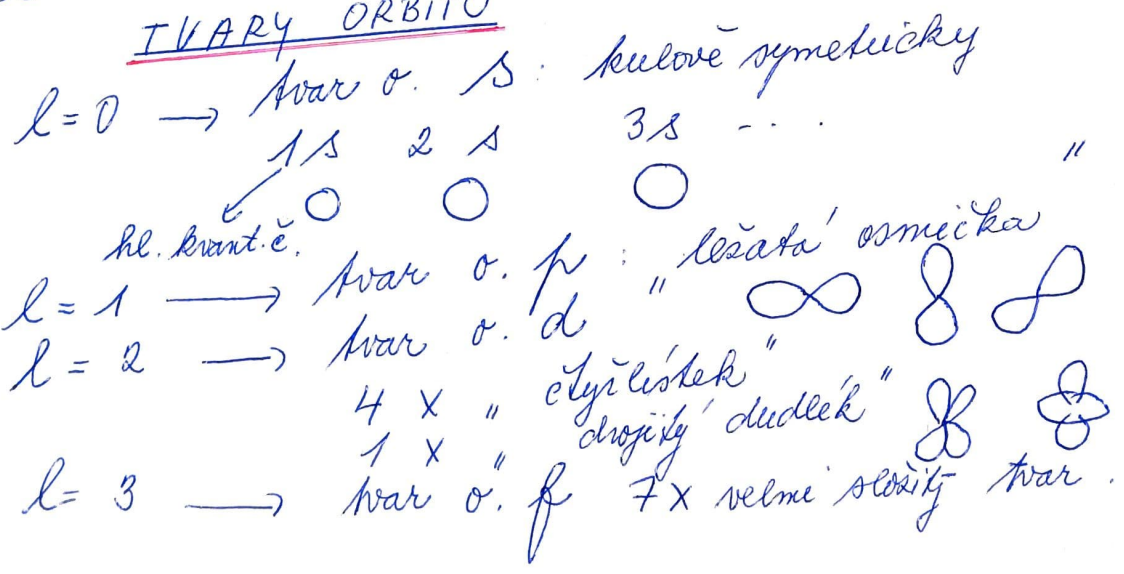 TVARY ORBITŮ
l = 0 → tvar o. s : kulově symetrický
1s 2 s 3s - . .
hl. kvant. č.
l = 1 → tvar o. p : „ležatá osmička"
l = 2 → tvar o. d
4 x „čtyřlístek"
1 x „dvojitý dudlík"
l = 3 → tvar o. f 7x velmi složitý tvar.